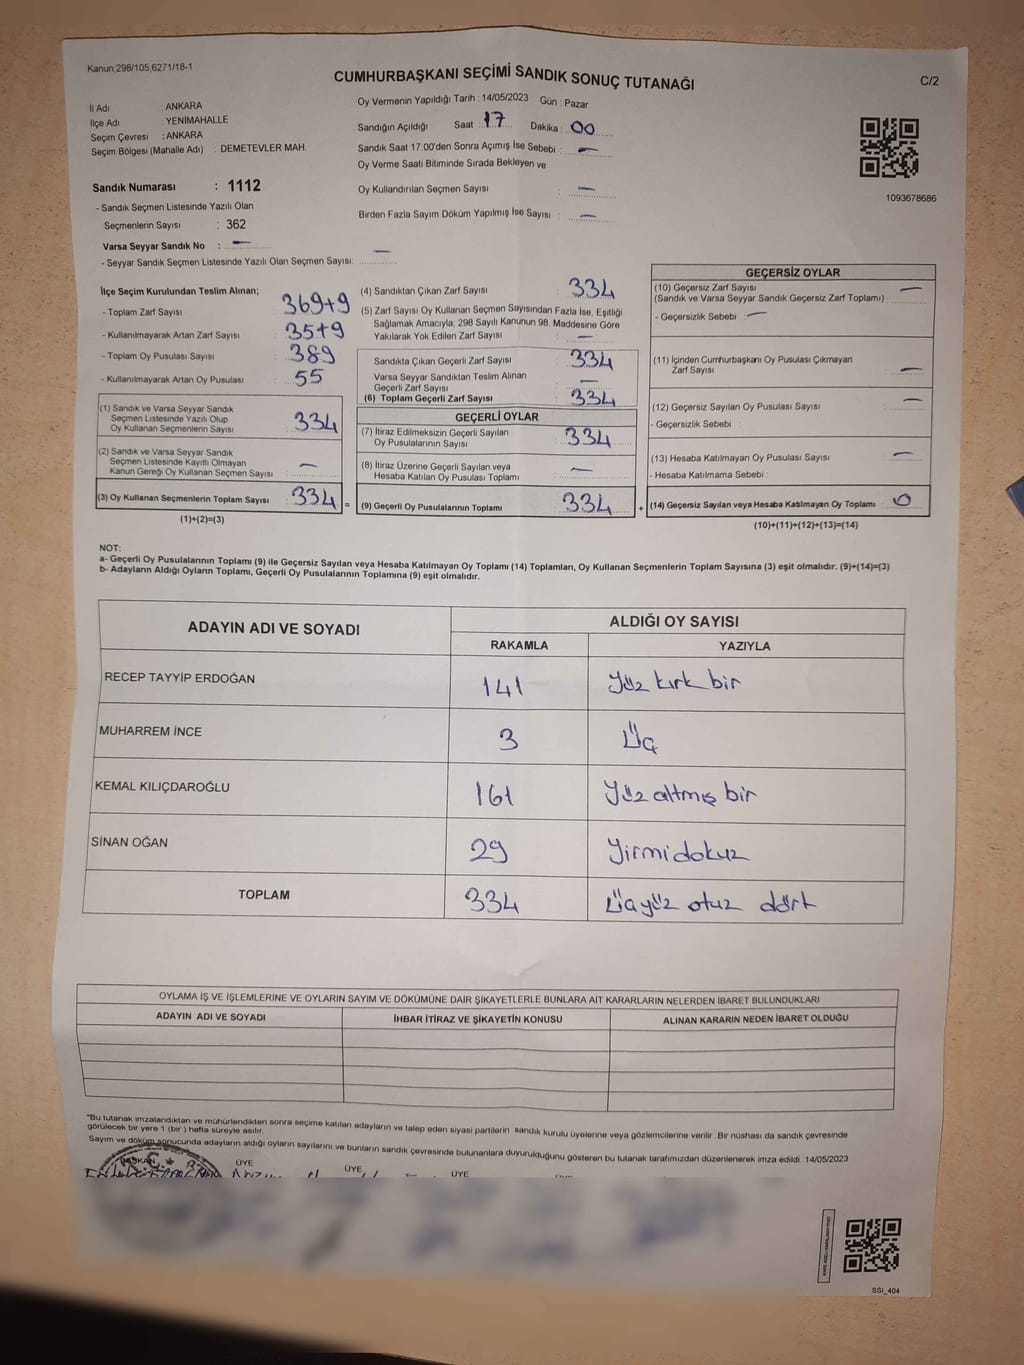 Kanun;298/105,6271/18-1
CUMHURBAŞKANI SEÇİMİ SANDIK SONUÇ TUTANAĞI
C/2
İl Adı : ANKARA
İlçe Adı : YENİMAHALLE
Seçim Çevresi : ANKARA
Seçim Bölgesi (Mahalle Adı) : DEMETEVLER MAH.
Oy Vermenin Yapıldığı Tarih : 14/05/2023 Gün : Pazar
Sandığın Açıldığı Saat : 17 Dakika : 00
Sandık Saat 17:00'den Sonra Açımış İse Sebebi : —
Oy Verme Saati Bitiminde Sırada Bekleyen ve
Oy Kullandırılan Seçmen Sayısı : —
Birden Fazla Sayım Döküm Yapılmış İse Sayısı : —
1093678686
Sandık Numarası : 1112
- Sandık Seçmen Listesinde Yazılı Olan
Seçmenlerin Sayısı : 362
Varsa Seyyar Sandık No : —
- Seyyar Sandık Seçmen Listesinde Yazılı Olan Seçmen Sayısı: —
İlçe Seçim Kurulundan Teslim Alınan;
- Toplam Zarf Sayısı : 369+9
- Kullanılmayarak Artan Zarf Sayısı : 35+9
- Toplam Oy Pusulası Sayısı : 389
- Kullanılmayarak Artan Oy Pusulası : 55
(1) Sandık ve Varsa Seyyar Sandık
Seçmen Listesinde Yazılı Olup
Oy Kullanan Seçmenlerin Sayısı : 334
(2) Sandık ve Varsa Seyyar Sandık
Seçmen Listesinde Kayıtlı Olmayan
Kanun Gereği Oy Kullanan Seçmen Sayısı : —
(3) Oy Kullanan Seçmenlerin Toplam Sayısı : 334 =
(1)+(2)=(3)
(4) Sandıktan Çıkan Zarf Sayısı : 334
(5) Zarf Sayısı Oy Kullanan Seçmen Sayısından Fazla İse, Eşitliği
Sağlamak Amacıyla, 298 Sayılı Kanunun 98. Maddesine Göre
Yakılarak Yok Edilen Zarf Sayısı : —
Sandıkta Çıkan Geçerli Zarf Sayısı : 334
Varsa Seyyar Sandıktan Teslim Alınan
Geçerli Zarf Sayısı : —
(6) Toplam Geçerli Zarf Sayısı : 334
GEÇERLİ OYLAR
(7) İtiraz Edilmeksizin Geçerli Sayılan
Oy Pusulalarının Sayısı : 334
(8) İtiraz Üzerine Geçerli Sayılan veya
Hesaba Katılan Oy Pusulası Toplamı : —
(9) Geçerli Oy Pusulalarının Toplamı : 334 +
GEÇERSİZ OYLAR
(10) Geçersiz Zarf Sayısı
(Sandık ve Varsa Seyyar Sandık Geçersiz Zarf Toplamı) : —
- Geçersizlik Sebebi : —
(11) İçinden Cumhurbaşkanı Oy Pusulası Çıkmayan
Zarf Sayısı : —
(12) Geçersiz Sayılan Oy Pusulası Sayısı : —
- Geçersizlik Sebebi :
(13) Hesaba Katılmayan Oy Pusulası Sayısı : —
- Hesaba Katılmama Sebebi :
(14) Geçersiz Sayılan veya Hesaba Katılmayan Oy Toplamı : 0
(10)+(11)+(12)+(13)=(14)
NOT:
a- Geçerli Oy Pusulalarının Toplamı (9) ile Geçersiz Sayılan veya Hesaba Katılmayan Oy Toplamı (14) Toplamları, Oy Kullanan Seçmenlerin Toplam Sayısına (3) eşit olmalıdır. (9)+(14)=(3)
b- Adayların Aldığı Oyların Toplamı, Geçerli Oy Pusulalarının Toplamına (9) eşit olmalıdır.
ADAYIN ADI VE SOYADI
ALDIĞI OY SAYISI
RAKAMLA YAZIYLA
RECEP TAYYİP ERDOĞAN 141 Yüz kırk bir
MUHARREM İNCE 3 Üç
KEMAL KILIÇDAROĞLU 161 Yüz altmış bir
SİNAN OĞAN 29 Yirmi dokuz
TOPLAM 334 Üçyüz otuz dört
OYLAMA İŞ VE İŞLEMLERİNE VE OYLARIN SAYIM VE DÖKÜMÜNE DAİR ŞİKAYETLERLE BUNLARA AİT KARARLARIN NELERDEN İBARET BULUNDUKLARI
ADAYIN ADI VE SOYADI İHBAR İTİRAZ VE ŞİKAYETİN KONUSU ALINAN KARARIN NEDEN İBARET OLDUĞU
"Bu tutanak imzalandıktan ve mühürlendikten sonra seçime katılan adayların ve talep eden siyasi partilerin sandık kurulu üyelerine veya gözlemcilerine verilir. Bir nüshası da sandık çevresinde
görülecek bir yere 1 (bir) hafta süreyle asılır.
Sayım ve döküm sonucunda adayların aldığı oyların sayılarını ve bunların sandık çevresinde bulunanlara duyurulduğunu gösteren bu tutanak tarafımızdan düzenlenerek imza edildi. 14/05/2023
BAŞKAN ÜYE ÜYE ÜYE
SSI_404